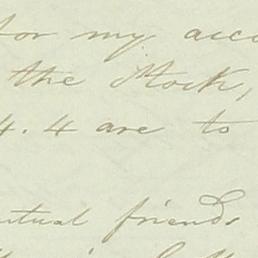 for my acco
the Stock,
4.4 are to
utual friends